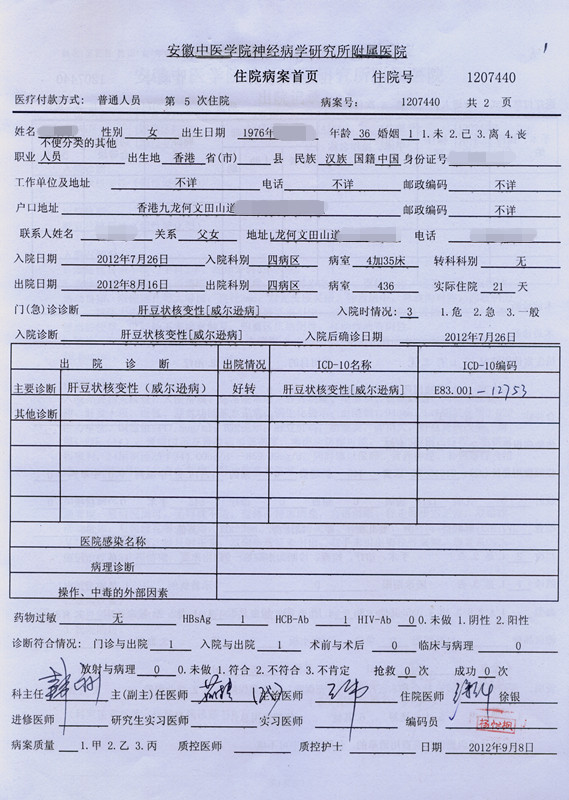 安徽中医学院神经病学研究所附属医院
1
住院病案首页 住院号 1207440
医疗付款方式: 普通人员 第 5 次住院 病案号: 1207440 共 2 页
姓名 性别 女 出生日期 1976年 年龄 36 婚姻 1 1.未 2.已 3.离 4.丧
不便分类的其他
职业 人员 出生地 香港 省(市) 县 民族 汉族 国籍 中国 身份证号
工作单位及地址 不详 电话 不详 邮政编码 不详
户口地址 香港九龙何文田山道 邮政编码 不详
联系人姓名 关系 父女 地址 九龙何文田山道 电话
入院日期 2012年7月26日 入院科别 四病区 病室 4加35床 转科科别 无
出院日期 2012年8月16日 出院科别 四病区 病室 436 实际住院 21 天
门(急)诊诊断 肝豆状核变性[威尔逊病] 入院时情况: 3 1.危 2.急 3.一般
入院诊断 肝豆状核变性[威尔逊病] 入院后确诊日期 2012年7月26日
出 院 诊 断 出院情况 ICD-10名称 ICD-10编码
主要诊断 肝豆状核变性（威尔逊病） 好转 肝豆状核变性[威尔逊病] E83.001 -12753
其他诊断
医院感染名称
病理诊断
操作、中毒的外部因素
药物过敏 无 HBsAg 1 HCB-Ab 1 HIV-Ab 0 0.未做 1.阴性 2.阳性
诊断符合情况: 门诊与出院 1 入院与出院 1 术前与术后 0 临床与病理 0
放射与病理 0 0.未做 1.符合 2.不符合 3.不肯定 抢救 0 次 成功 0 次
科主任 主(副主)任医师 主治医师 住院医师 徐银
进修医师 研究生实习医师 实习医师 编码员
病案质量 1.甲 2.乙 3.丙 质控医师 质控护士 日期 2012年9月8日